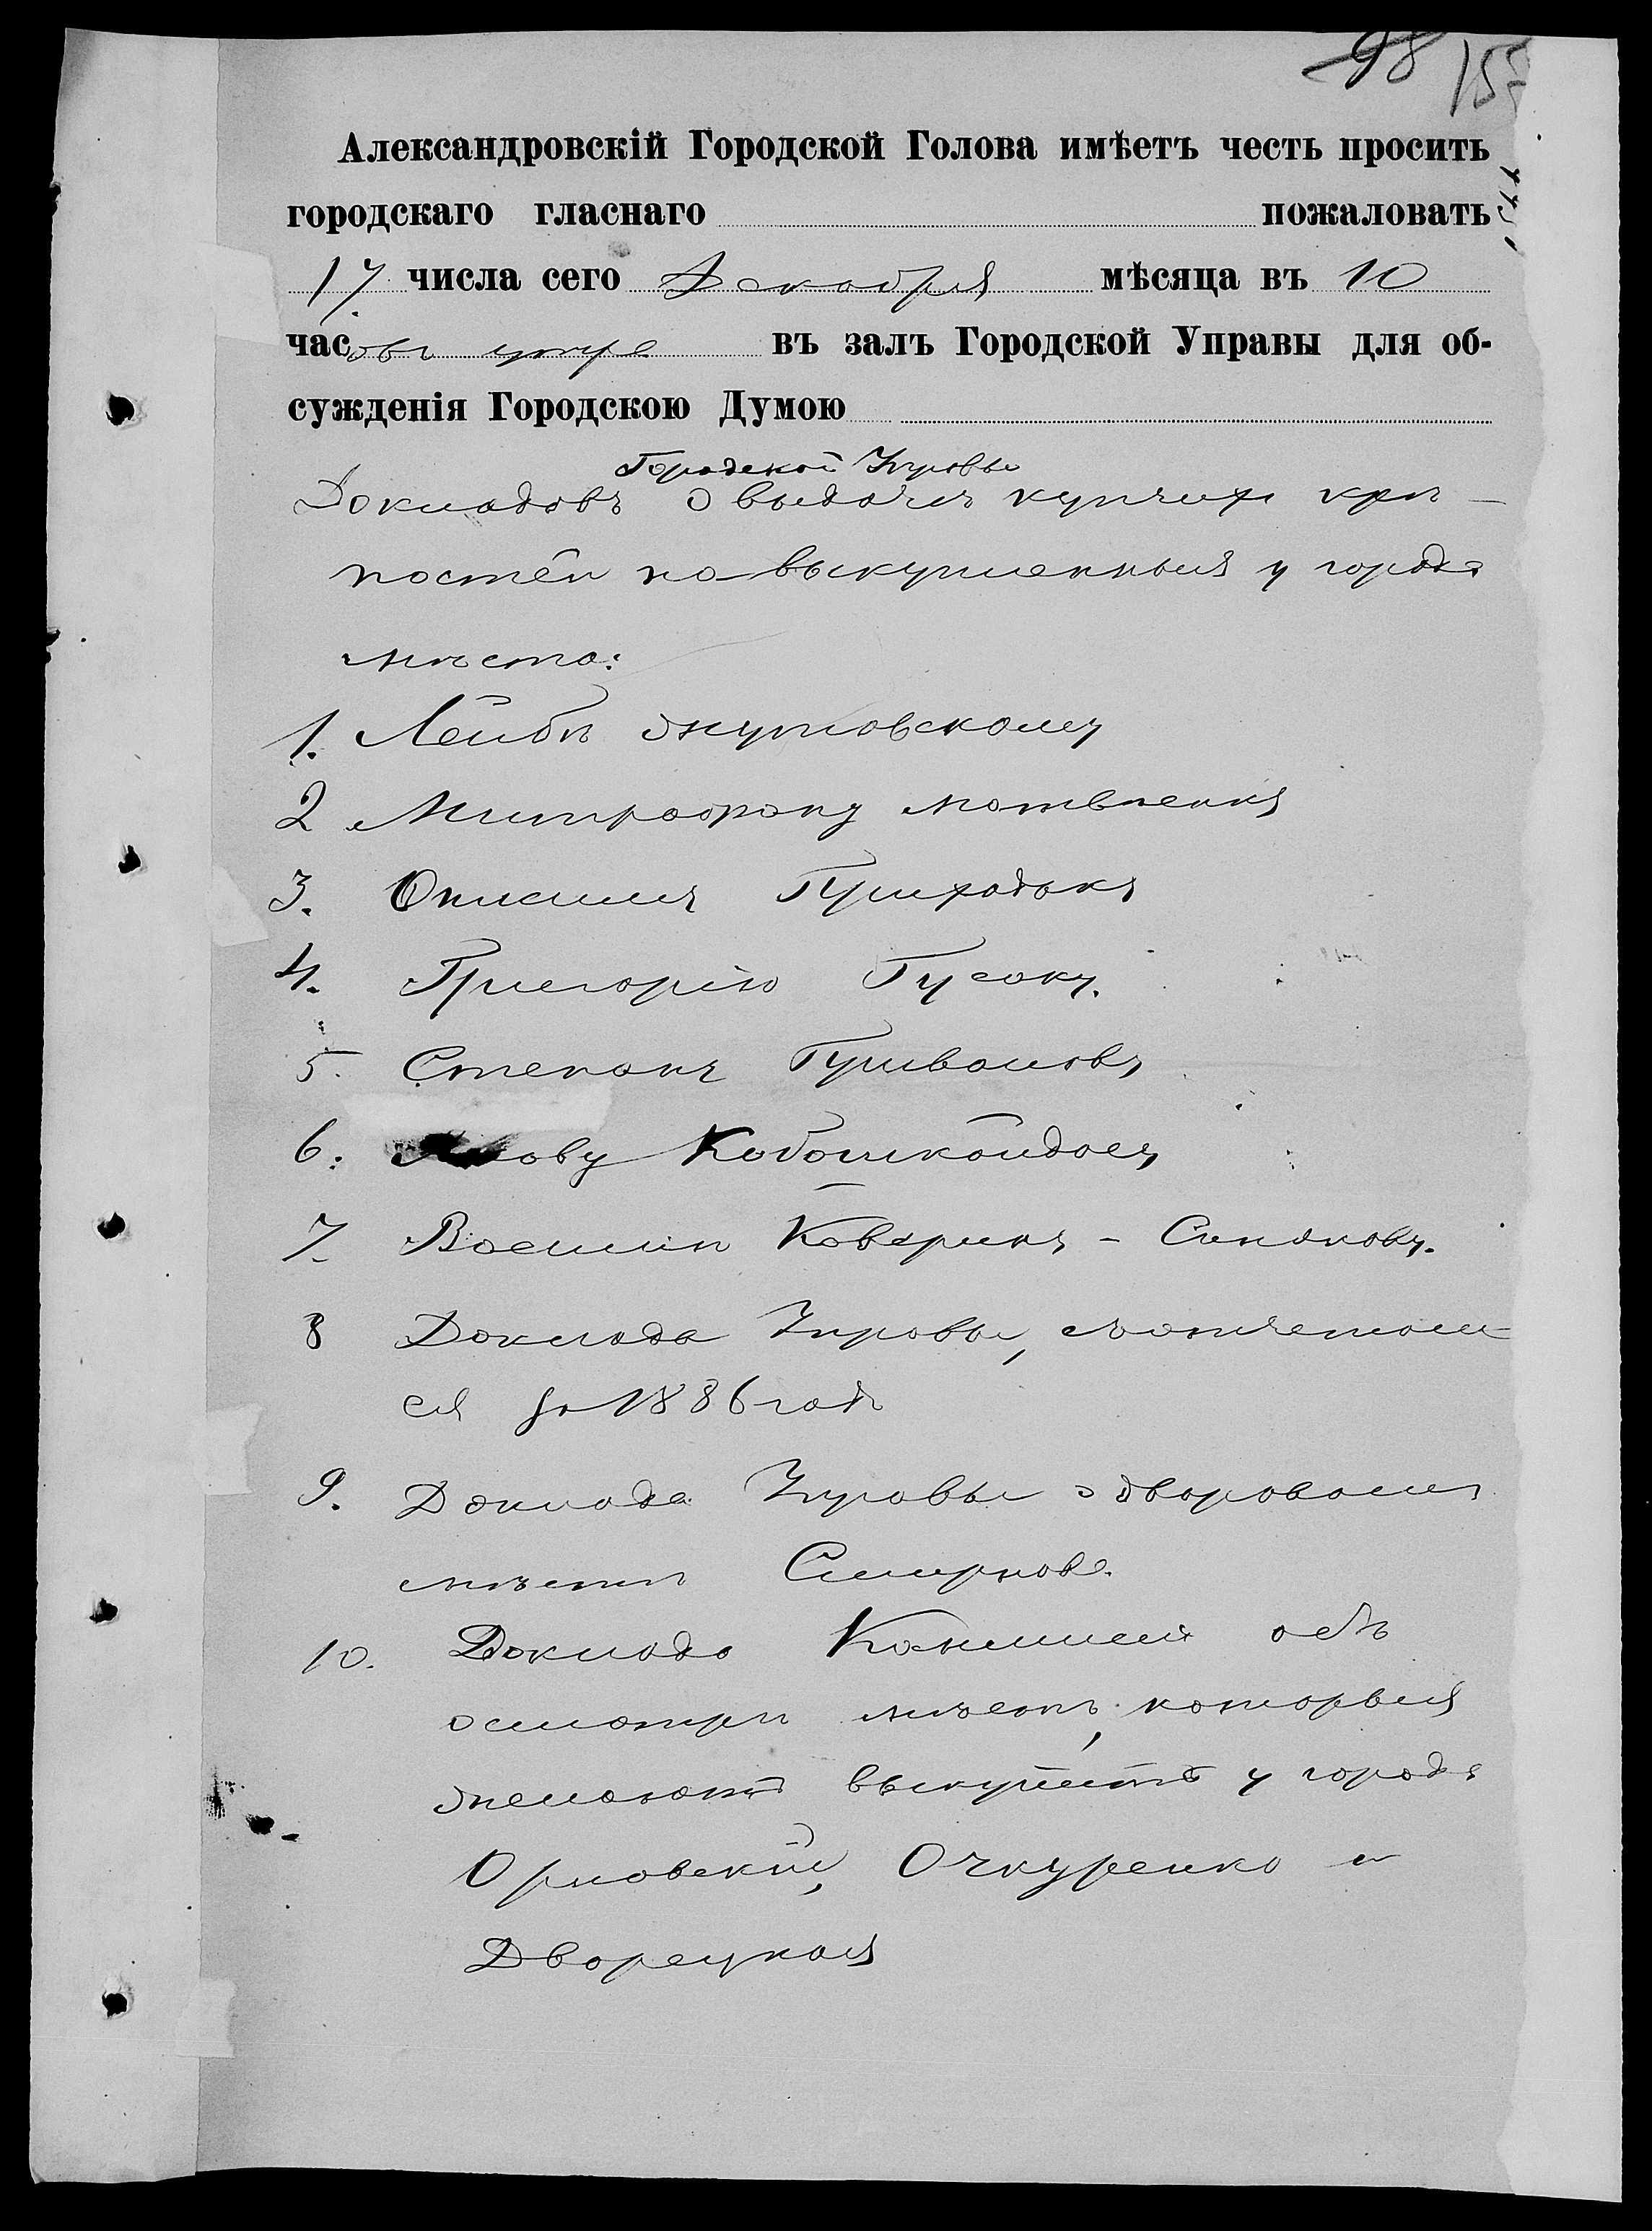 98 155
Александровскій Городской Голова имѣетъ честь просить
городскаго гласнаго пожаловать
17 числа сего Декабря мѣсяца въ 10
часовъ утра въ залъ Городской Управы для об-
сужденія Городскою Думою
Городской Управы
Докладовъ о выдачѣ купчихъ крѣ-
постей на выкупленныя у города
мѣста:
1. Лейбѣ Жуковскому
2 Митрофану Матвѣенку
3. Онисиму Приходьку
4. Григорію Гусаку.
5. Степану Приваловъ
6. Якову Кабошкойдасу
7. Василію Каверину - Синякову.
8 Доклада Управы, съ отчетомъ
ея за 1886 годъ
9. Доклада Управы о дворовомъ
мѣстѣ Смирнова.
10. Доклада Коммисіи объ
осмотрѣ мѣстъ, которыя
желаютъ выкупить у города
Орловскій, Очкуренко и
Дворецкая